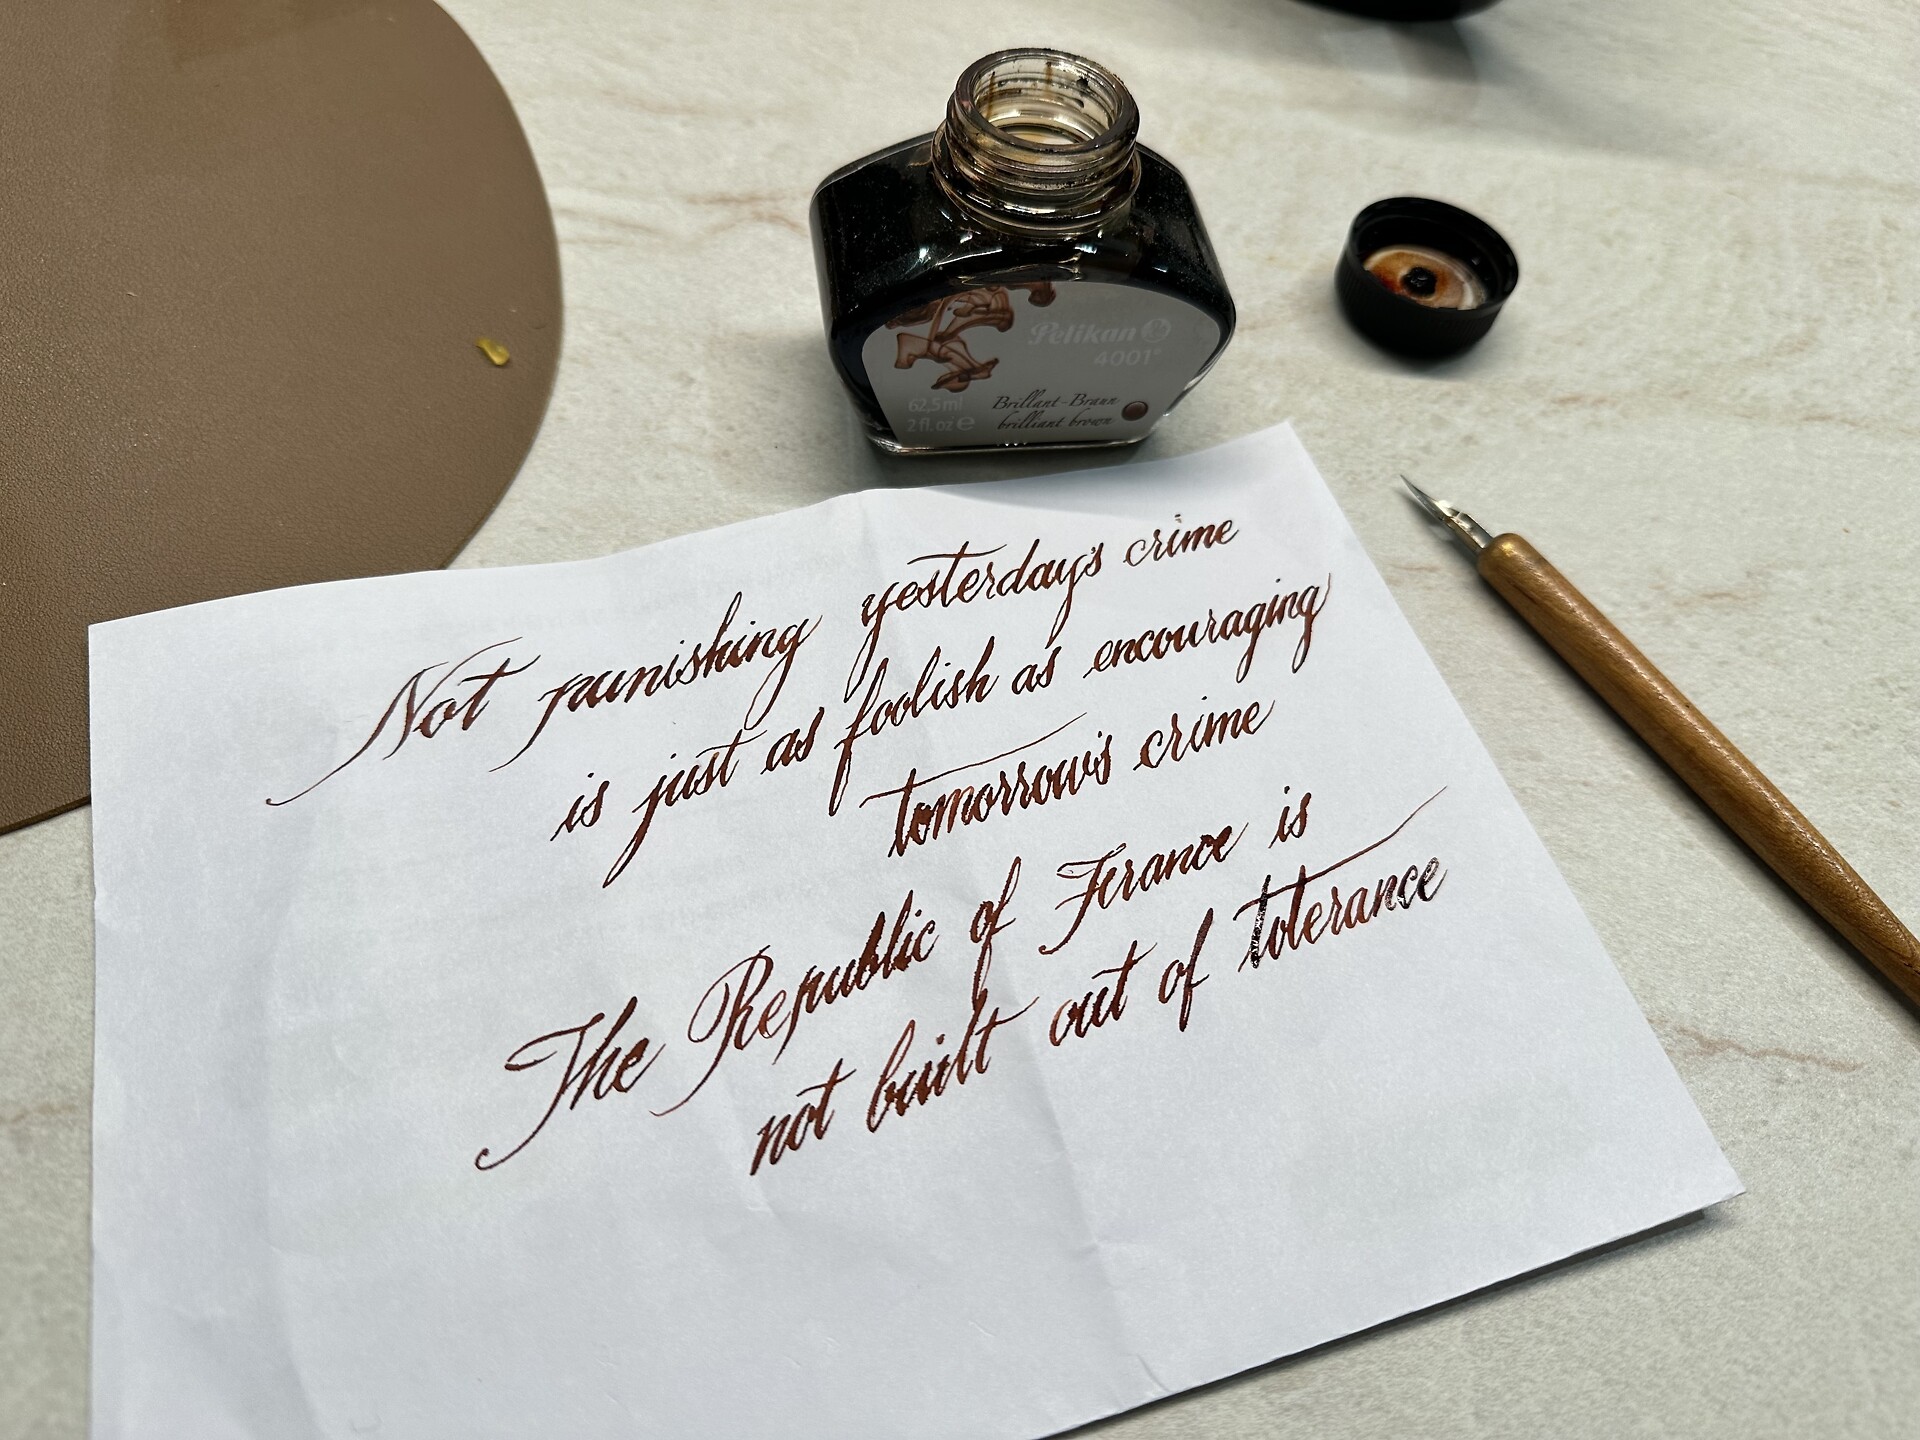 Pelikan
4001®
62,5 ml
2 fl. oz e
Brillant-Braun
brilliant brown
Not punishing yesterday's crime
is just as foolish as encouraging
tomorrow's crime
The Republic of France is
not built out of tolerance